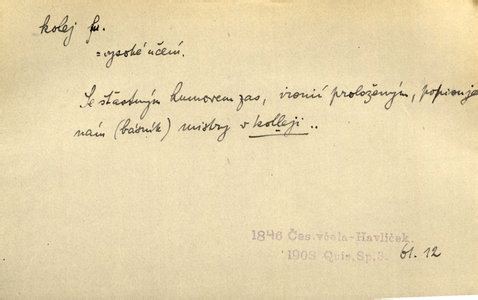 kolej fm.
= vysoké učení.
Se šťastným humorem zas, ironií proloženým, popisuje
nám (básník) mistry v kolleji ..
1846 Čes. včela-Havlíček.
1903 Quis, Sp. 3. 61. 12